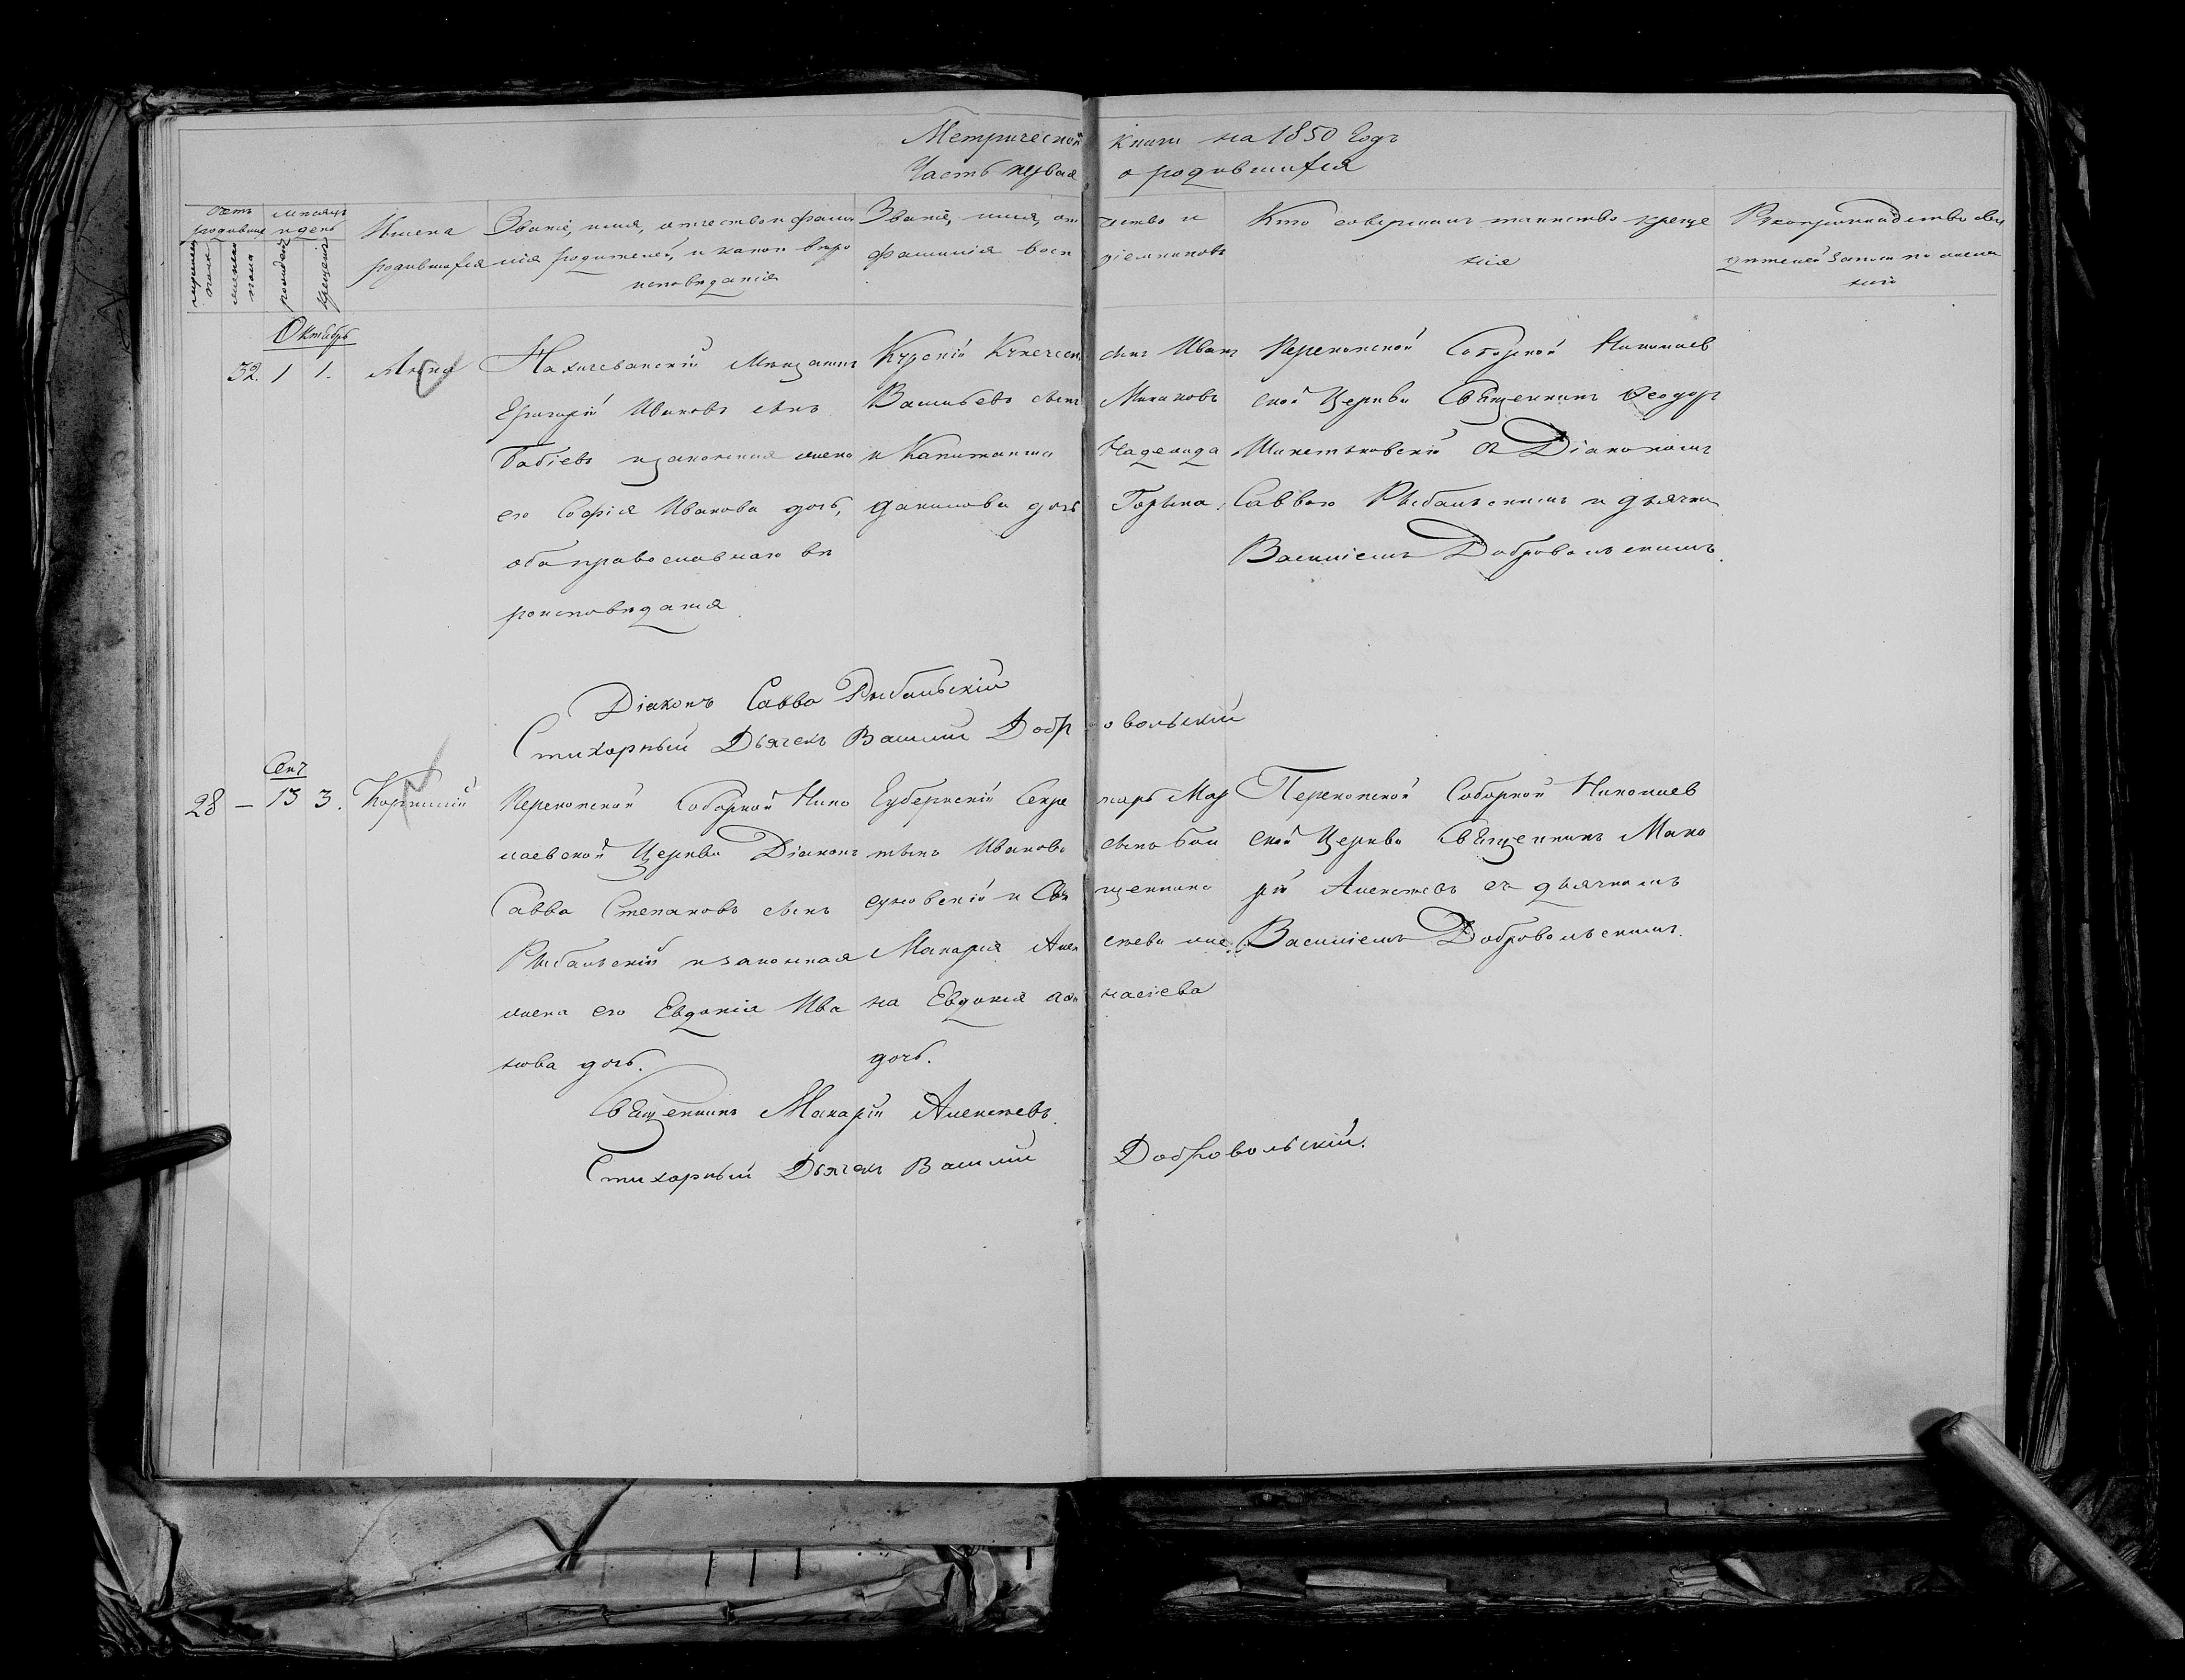 Метрической книги на 1850 Годъ
Часть первая о родившихся
Счетъ родившихся
мужеска пола
женска пола
Месяцъ и день
рожденія
крещенія
Имена родившихся
Званіе, имя, отчество и фами
лія родителей, и какого веро
исповеданія
Званіе, имя, отчество и
фамилія воспріемниковъ
Кто совершалъ таинство креще
нія
Рукоприкладство свид
дителей записи по жела
нію
Октябрь
32. 1 1. Анна
Нахичеванскій мещанинъ
Григорій Ивановъ сынъ
Бабіевъ и законная жена
его Софія Иванова дочь,
оба православнаго ве
роисповеданія
Курскій Купеческ сынъ Иванъ
Васильевъ сынъ Маликовъ
и Капитанша Надежда
Данилова дочь Горына.
Перекопской Соборной Николаев
ской Церкви Священникъ Феодоръ
съ Діакономъ
Саввою Рыбальскимъ и дьячко
Василіемъ Добровольскимъ.
Діаконъ Савва Рыбальскій
Стихарный Дьячекъ Василий Добровольскій
Сен
28 — 13 3. Корнилій
Перекопской Соборной Нико
лаевской Церкви Діаконъ
Савва Степановъ сынъ
Рыбальскій и законная
жена его Евдокія Ива
нова дочь.
Губернскій Секретарь Мар
тынъ Ивановъ сынъ Бон
суковскій и Священника
Макарія Алексеева же
на Евдокія Афанасіева
дочь.
Перекопской Соборной Николаев
ской Церкви Священникъ Мака
рій Алексеевъ съ дьячкомъ
Василіемъ Добровольскимъ.
Священникъ Макарій Алексеевъ.
Стихарный Дьячекъ Василий Добровольскій.